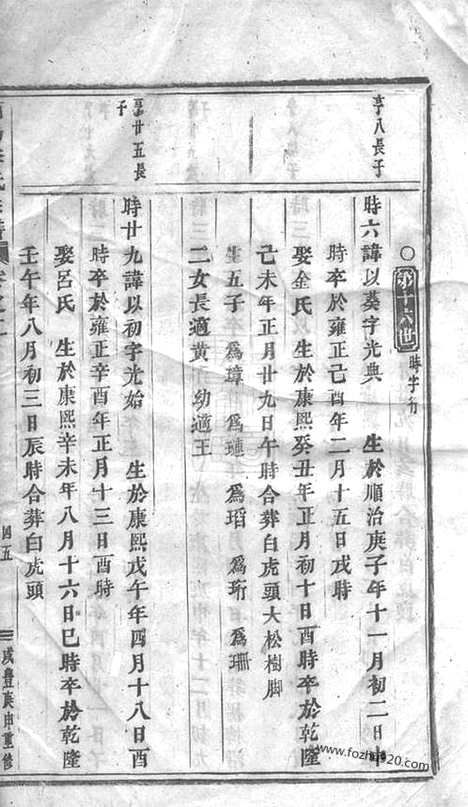 ○第十六世 時字行
亨八長子
時六諱以葵字光典 生於順治庚子年十一月初二日申
時卒於雍正己酉年二月十五日戌時
娶金氏 生於康熙癸丑年正月初十日酉時卒於乾隆
己未年正月廿九日午時合葬白虎頭大松樹脚
生五子 爲璋 爲璉 爲瑫 爲珩 爲珊
二女長適黃 幼適王
亨廿五長
子
時廿九諱以初字光始 生於康熙戊午年四月十八日酉
時卒於雍正辛酉年正月十三日酉時
娶呂氏 生於康熙辛未年八月十六日巳時卒於乾隆
壬午年八月初三日辰時合葬白虎頭
四五
咸豐庚申重修
www.fozhu920.com